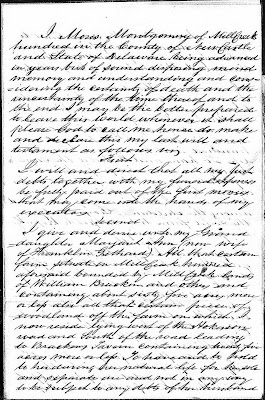 I, Moses Montgomery of Mill Creek
hundred in the County of New Castle
and State of Delaware being advanced
in years but of sound disposing mind
memory and understanding and con-
sidering the certainty of death and the
uncertainty of the time thereof and to
the end I may be the better prepared
to leave this world whenever it shall
please God to call me hence do make
and declare this my last will and
testament as follows viz
First
I will and direct that all my just
debts together with my funeral expenses
be fully paid out of the first moneys
that may come into the hands of my
executors
Second
I give and devise unto my Grand
daughter Margaret Ann (now wife
of Franklin ) All that certain
farm situate in Mill Creek hundred
aforesaid bounded by Mill Creek lands
of William Brackin and others and
containing about sixty five acres more
or less also all that certain piece of
woodland off the farm on which I
now reside lying west of the
road and South of the road leading
to Brackens containing
acres more or less To have and to hold
to her during her natural life for her sole
and separate use and not in any way
to be subject to any debts of her husband